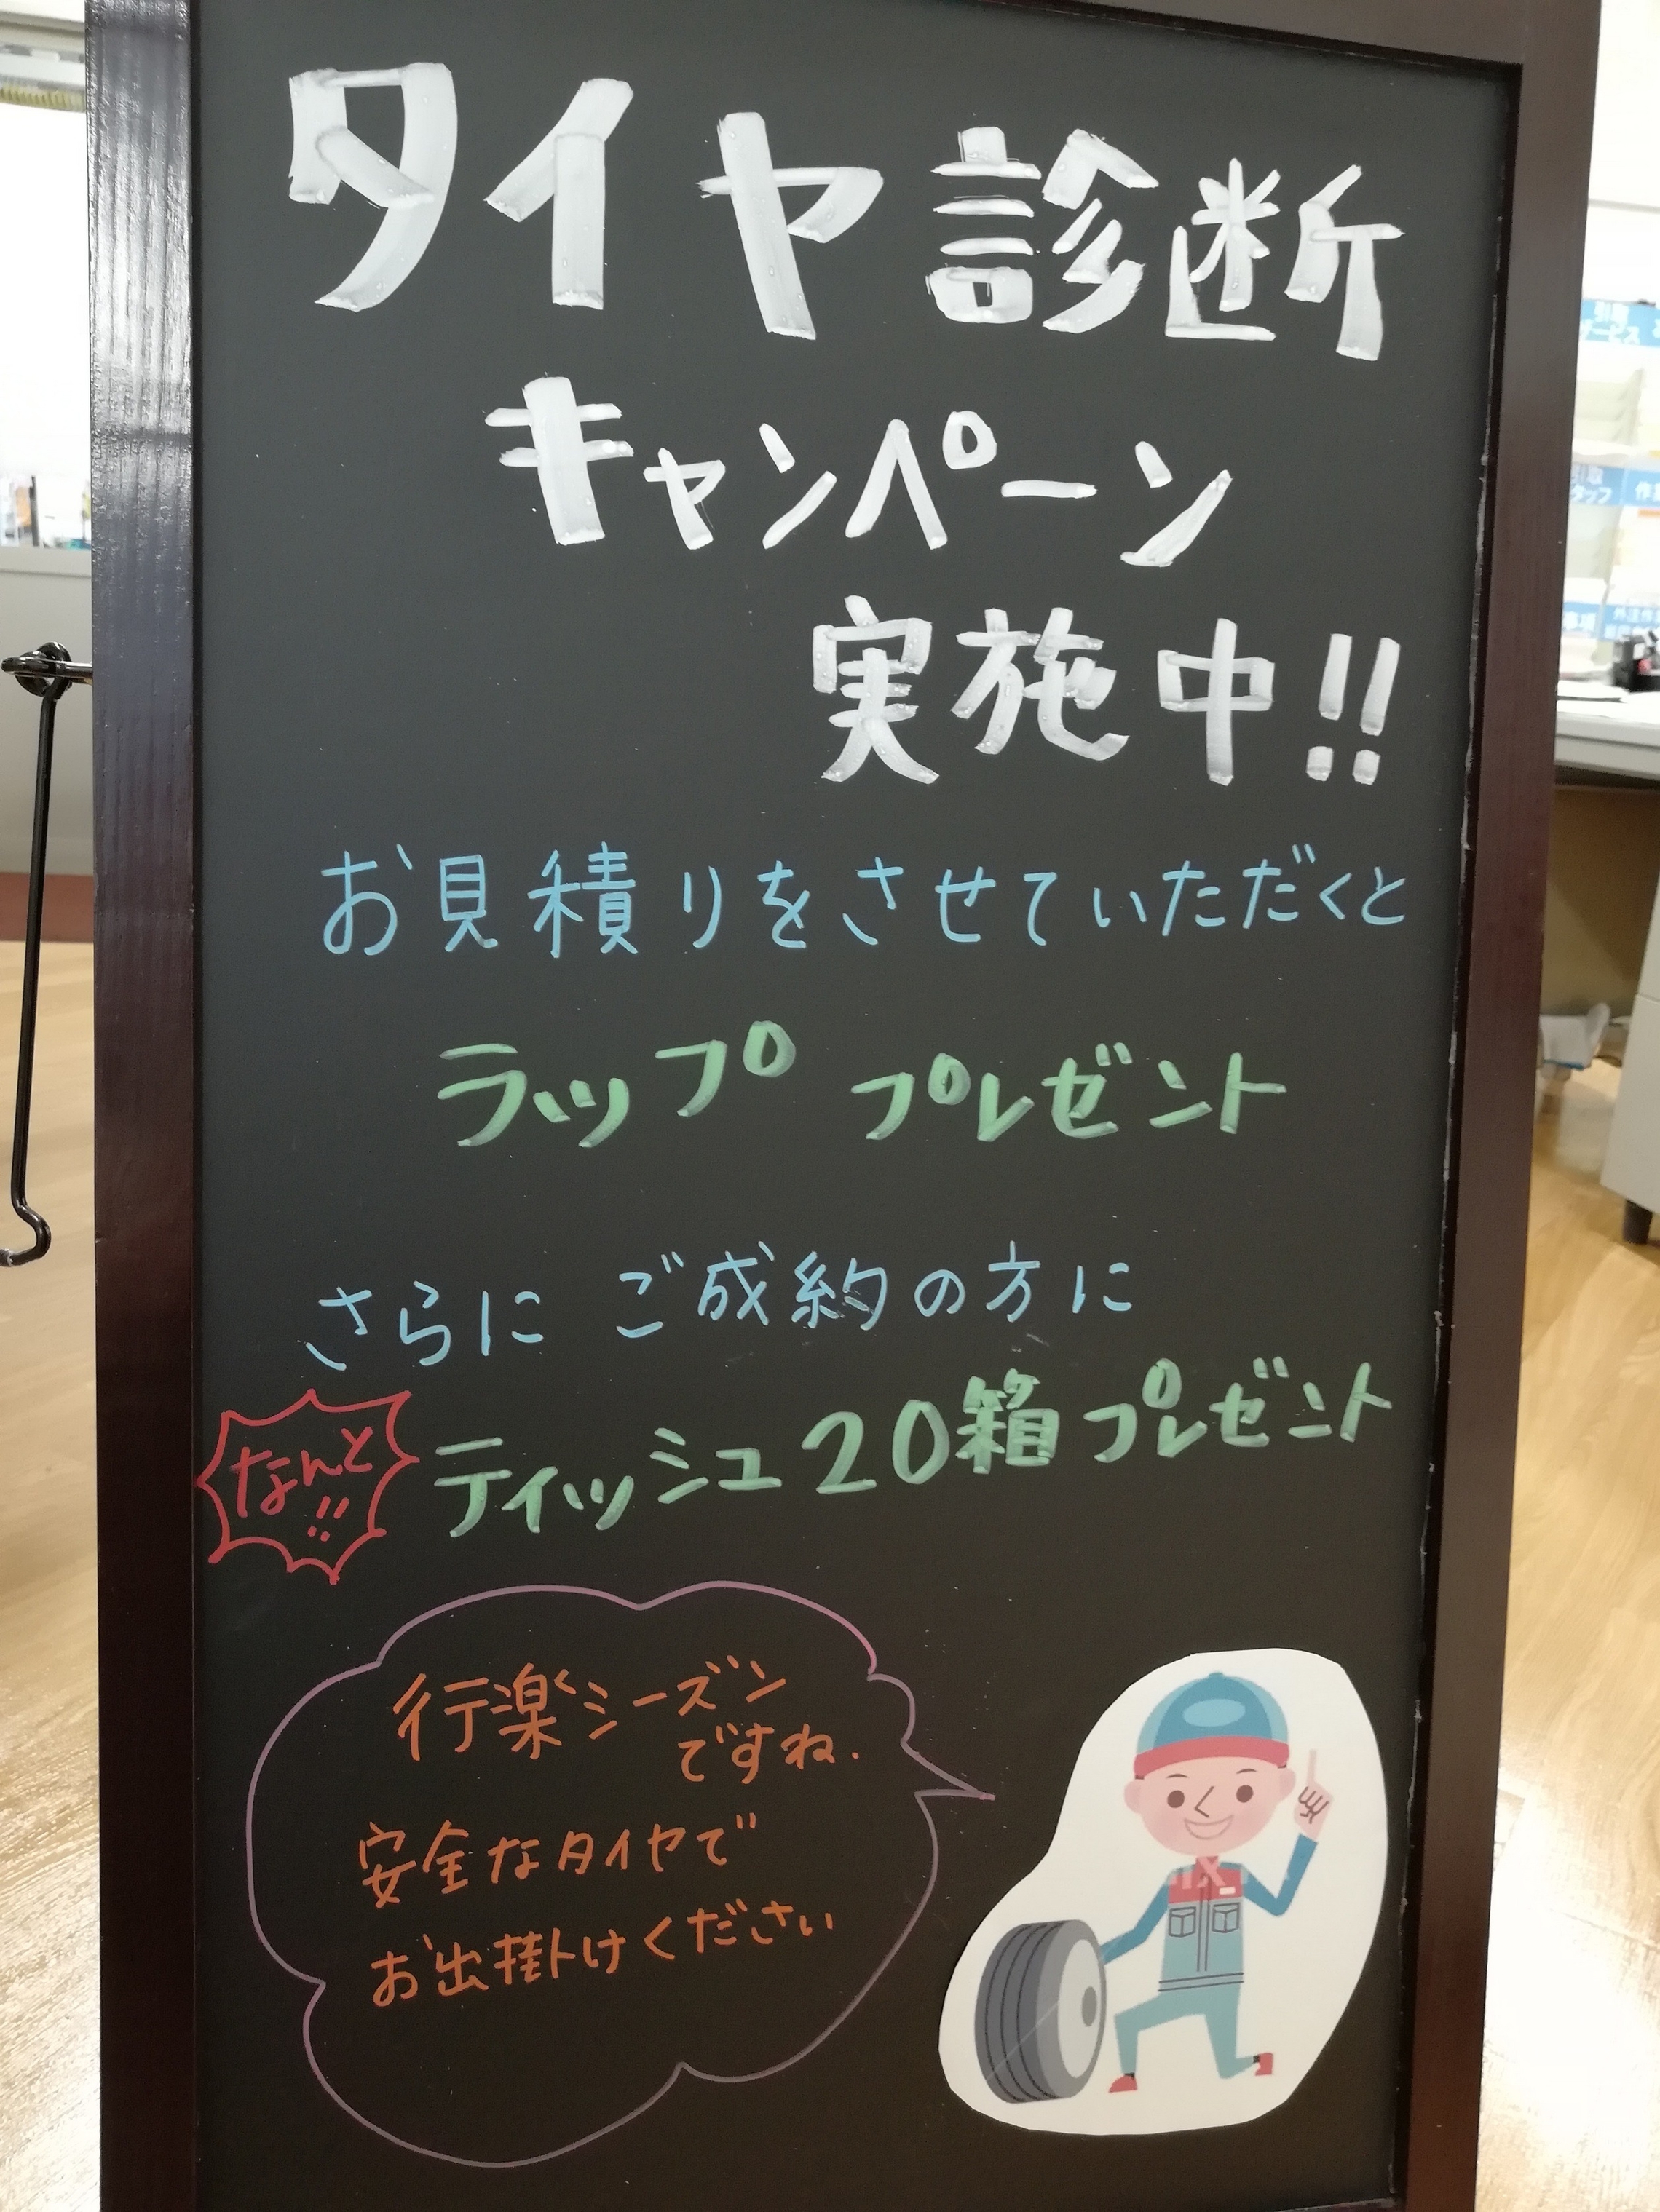 タイヤ診断
キャンペーン
実施中!!
お見積りをさせていただくと
ラップ プレゼント
さらに ご成約の方に
なんと
!!
ティッシュ20箱プレゼント
行楽シーズン
ですね.
安全なタイヤで
お出掛けください